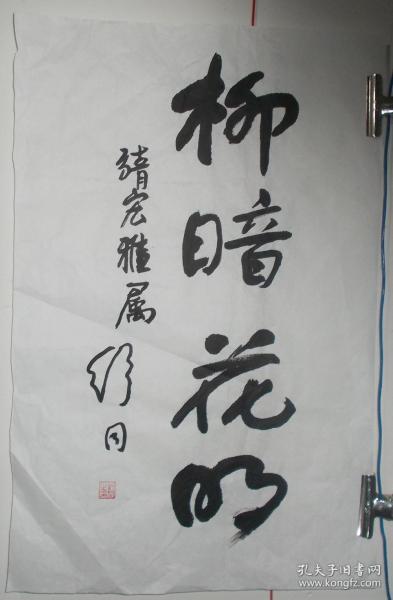 柳暗花明
宏雅属
舒同
孔夫子旧书网
www.kongfz.com